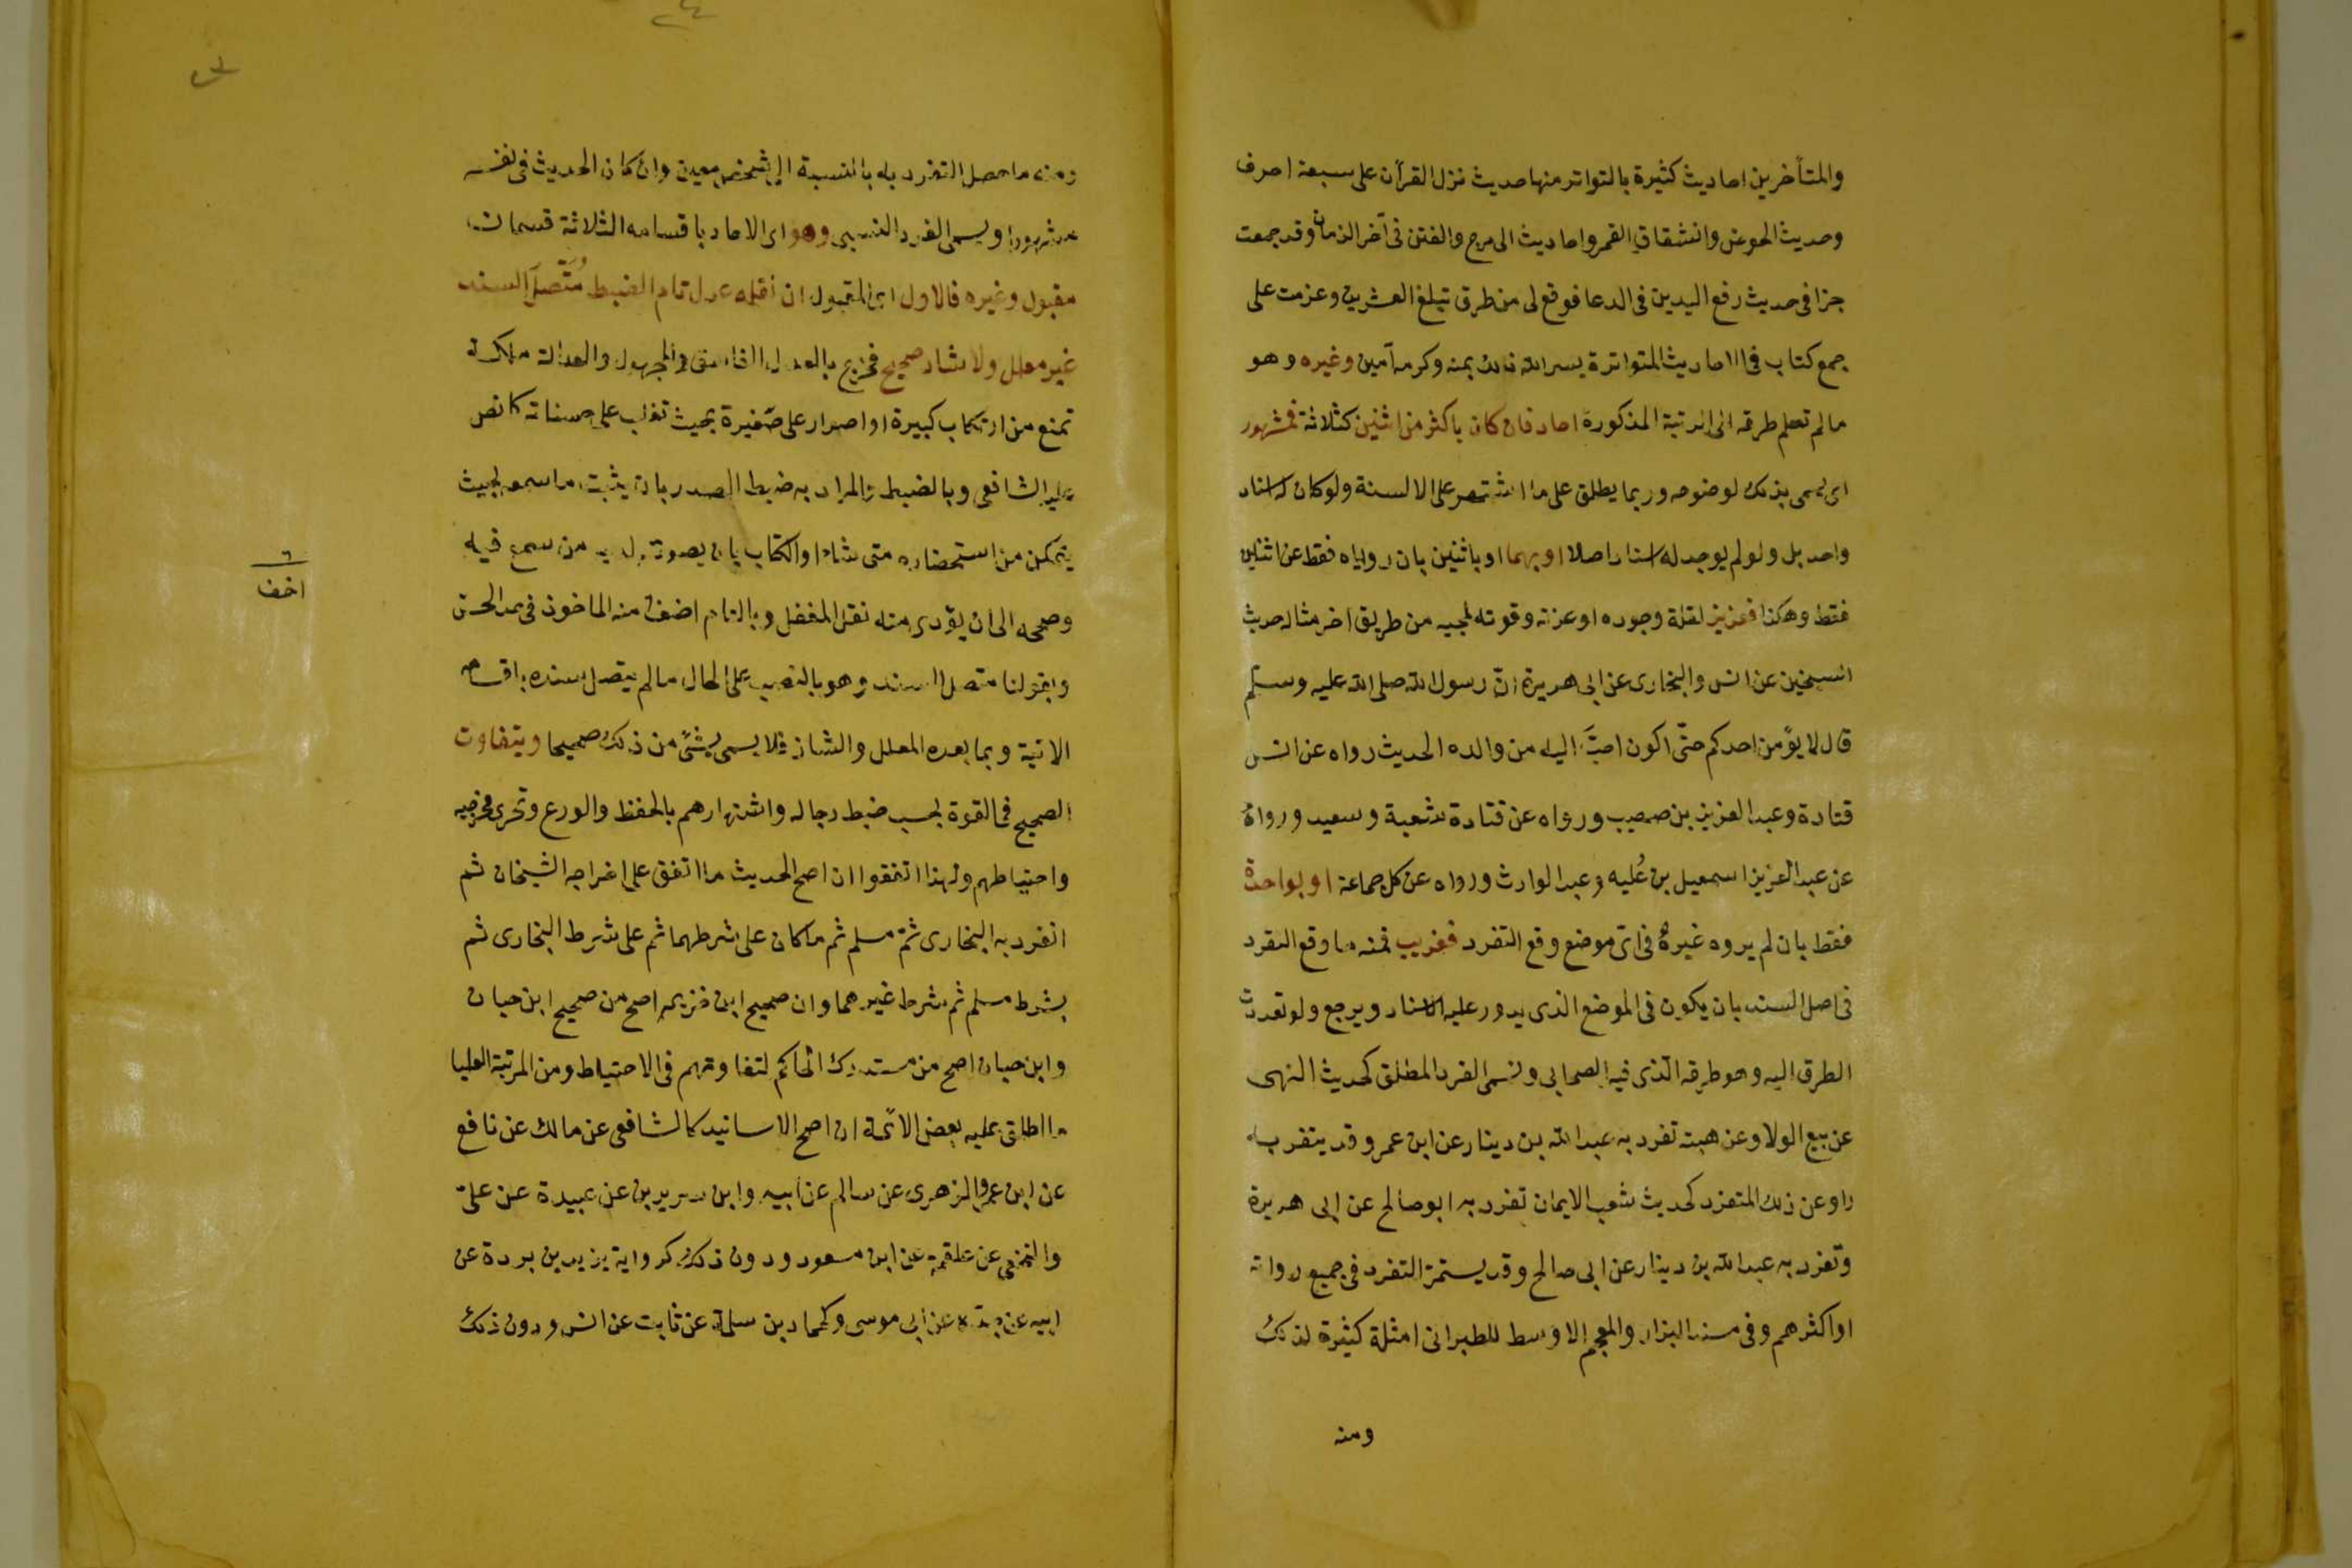 والمتأخرين احاديث كثيرة بالتواتر منها حديث نزل القرآن على سبعة احرف
وحديث الحوض وانشقاق القمر واحاديث الهرج والفتن فى آخر الزمان وقد جمعت
جزا فى حديث رفع اليدين فى الدعا فوقع لى من طرق تبلغ العشرين وعزمت على
جمع كتاب فى الاحاديث المتواترة يسر الله ذلك بمنه وكرمه آمين وغيره وهو
ما لم تصل طرقه الى الرتبة المذكورة احاد فان كان باكثر من اثنين كثلاثة فمشهور
اى يسمى بذلك لوضوحه وربما يطلق على ما اشتهر على الالسنة ولو كان له اسناد
واحد بل ولو لم يوجد له اسناد اصلا او بهما او باثنين بان روياه فقط عن اثنين
فقط وهكذا فعزيز لقلة وجوده او عزته وقوته لمجيه من طريق اخر مثاله حديث
الشيخين عن انس والبخارى عن ابى هريرة انّ رسول الله صلى الله عليه وسلم
قال لا يؤمن احدكم حتّى اكون احبّ اليه من والده الحديث رواه عن انس
قتادة وعبد العزيز بن صهيب ورواه عن قتادة شعبة وسعيد ورواه
عن عبد العزيز اسمعيل بن عُليه وعبد الوارث ورواه عن كل جماعة او بواحدة
فقط بان لم يروه غيرهُ فى اىّ موضع وقع التفرد فغريب فمنه ما وقع التفرد
فى اصل السند بان يكون فى الموضع الذى يدور عليه الاسناد ويرجع ولو تعددت
الطرق اليه وهو طرفه الذى فيه الصحابى ويسمى الفرد المطلق كحديث النهى
عن بيع الولا وعن هبته تفرد به عبد الله بن دينار عن ابن عمر وقد يتفرد به
راو عن ذلك المتفرد كحديث شعب الايمان تفرد به ابو صالح عن ابى هريرة
وتفرد به عبد الله بن دينار عن ابى صالح وقد يستمرّ التفرد فى جميع رواته
او اكثرهم وفى مسند البزار والمعجم الاوسط للطبرانى امثلة كثيرة لذلك
ومنه
ومنه ما حصل التفرد به بالنسبة الى شخص معين وان كان الحديث فى نفسه
مشهورا ويسمى الفرد النسبى وهو اى الاحاد باقسامه الثلاثة قسمان
مقبول وغيره فالاول اى المقبول ان نقله عدل تام الضبط مُتّصلَ السند
غير معلل ولا شاذ صحيح فخرج بالعدل الفاسق والمجهول والعدالة ملكة
تمنع من ارتكاب كبيرة او اصرار على صغيرة بحيث تغلب على حسناته كما نص
عليه الشافعى وبالضبط والمراد به ضبط الصدر بان يثبت ما سمعه بحيث
يتمكن من استحضاره متى شاء او الكتاب بان يصونه لديه من سمع فيه
وصححه الى ان يؤدى منه نقل المغفل وبالتام اخف منه الماخوذ فى حد الحسن
٦
اخف
وبقولنا متصل السند وهو بالنصب على الحال ما لم يتصل سنده باقسامه
الاتية وبما بعده المعلل والشاذ فلا يسمى شئ من ذلك صحيحا ويتفاوت
الصحيح فى القوة بحسب ضبط رجاله واشتهارهم بالحفظ والورع وتحرى مخرجيه
واحتياطهم ولهذا اتفقوا ان اصح الحديث ما اتفق على اخراجه الشيخان ثم
انفرد به البخارى ثمّ مسلم ثم ما كان على شرطهما ثم على شرط البخارى ثم
بشرط مسلم ثم شرط غيرهما وان صحيح ابن خزيمه اصح من صحيح ابن حبان
وابن حبان اصح من مستدرك الحاكم لتفاوتهم فى الاحتياط ومن المرتبة العليا
ما اطلق عليه بعض الائمة ان اصح الاسانيد كالشافعى عن مالك عن نافع
عن ابن عمر والزهرى عن سالم عن ابيه وابن سيرين عن عبيدة عن علىّ
والنخعى عن علقمة عن ابن مسعود ودون ذلك كرواية يزيد بن بردة عن
ابيه عن جده عن ابى موسى وكحماد بن سلمة عن ثابت عن انس ودون ذلك